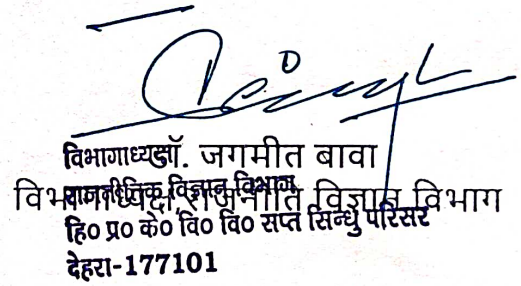 विभागाध्यक्ष
डॉ. जगमीत बावा
विभागाध्यक्ष, राजनीति विज्ञान विभाग
राजनीतिक विज्ञान विभाग
हि० प्र० के० वि० वि० सप्त सिन्धु परिसर
देहरा-177101